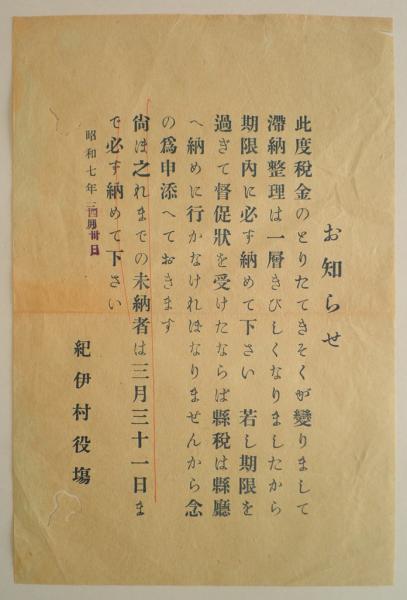 お知らせ
此度税金のとりたてきそくが變りまして
滯納整理は一層きびしくなりましたから
期限內に必ず納めて下さい 若し期限を
過ぎて督促狀を受けたならば縣稅は縣廳
へ納めに行かなければなりませんから念
の爲申添へておきます
尙ほ之れまでの未納者は三月三十一日ま
で必ず納めて下さい
昭和七年三月 日
紀伊村役塲